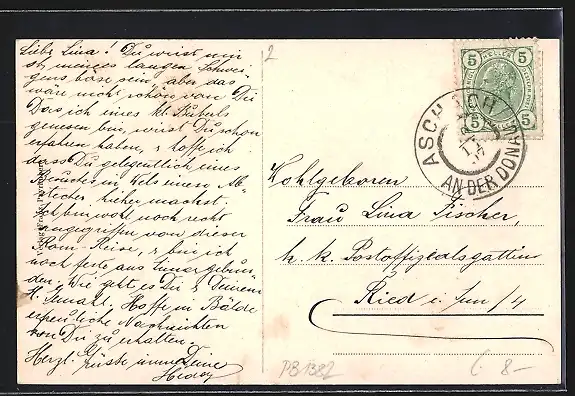 Liebe Lina! Du wirst mir
ob meines langen Schwei-
gens böse sein, aber das
wäre nicht schön von Dir
Das ich eines kl.
genesen bin, wirst Du schon
erfahren haben, & hoffe ich
dass Du gelegentlich eines
Besuches in Wels einen Ab-
stecher hieher machst.
Ich bin wohl noch recht
angegriffen von dieser
Reise, & bin ich
noch feste ans Zimmer gebun-
den. Wie geht es Dir & Deinem
H. Gemahl. Hoffe in Bälde
erfreuliche Nachrichten
von Dir zu erhalten.
Herzl. Grüsse immer Deine
2
5 HELLER 5
5 5
ASCHACH
AN DER DONAU
Wohlgeboren
Frau Lina Fischer,
k. k. Postoffizialsgattin
Ried i. Inn /4
PB1382
8-